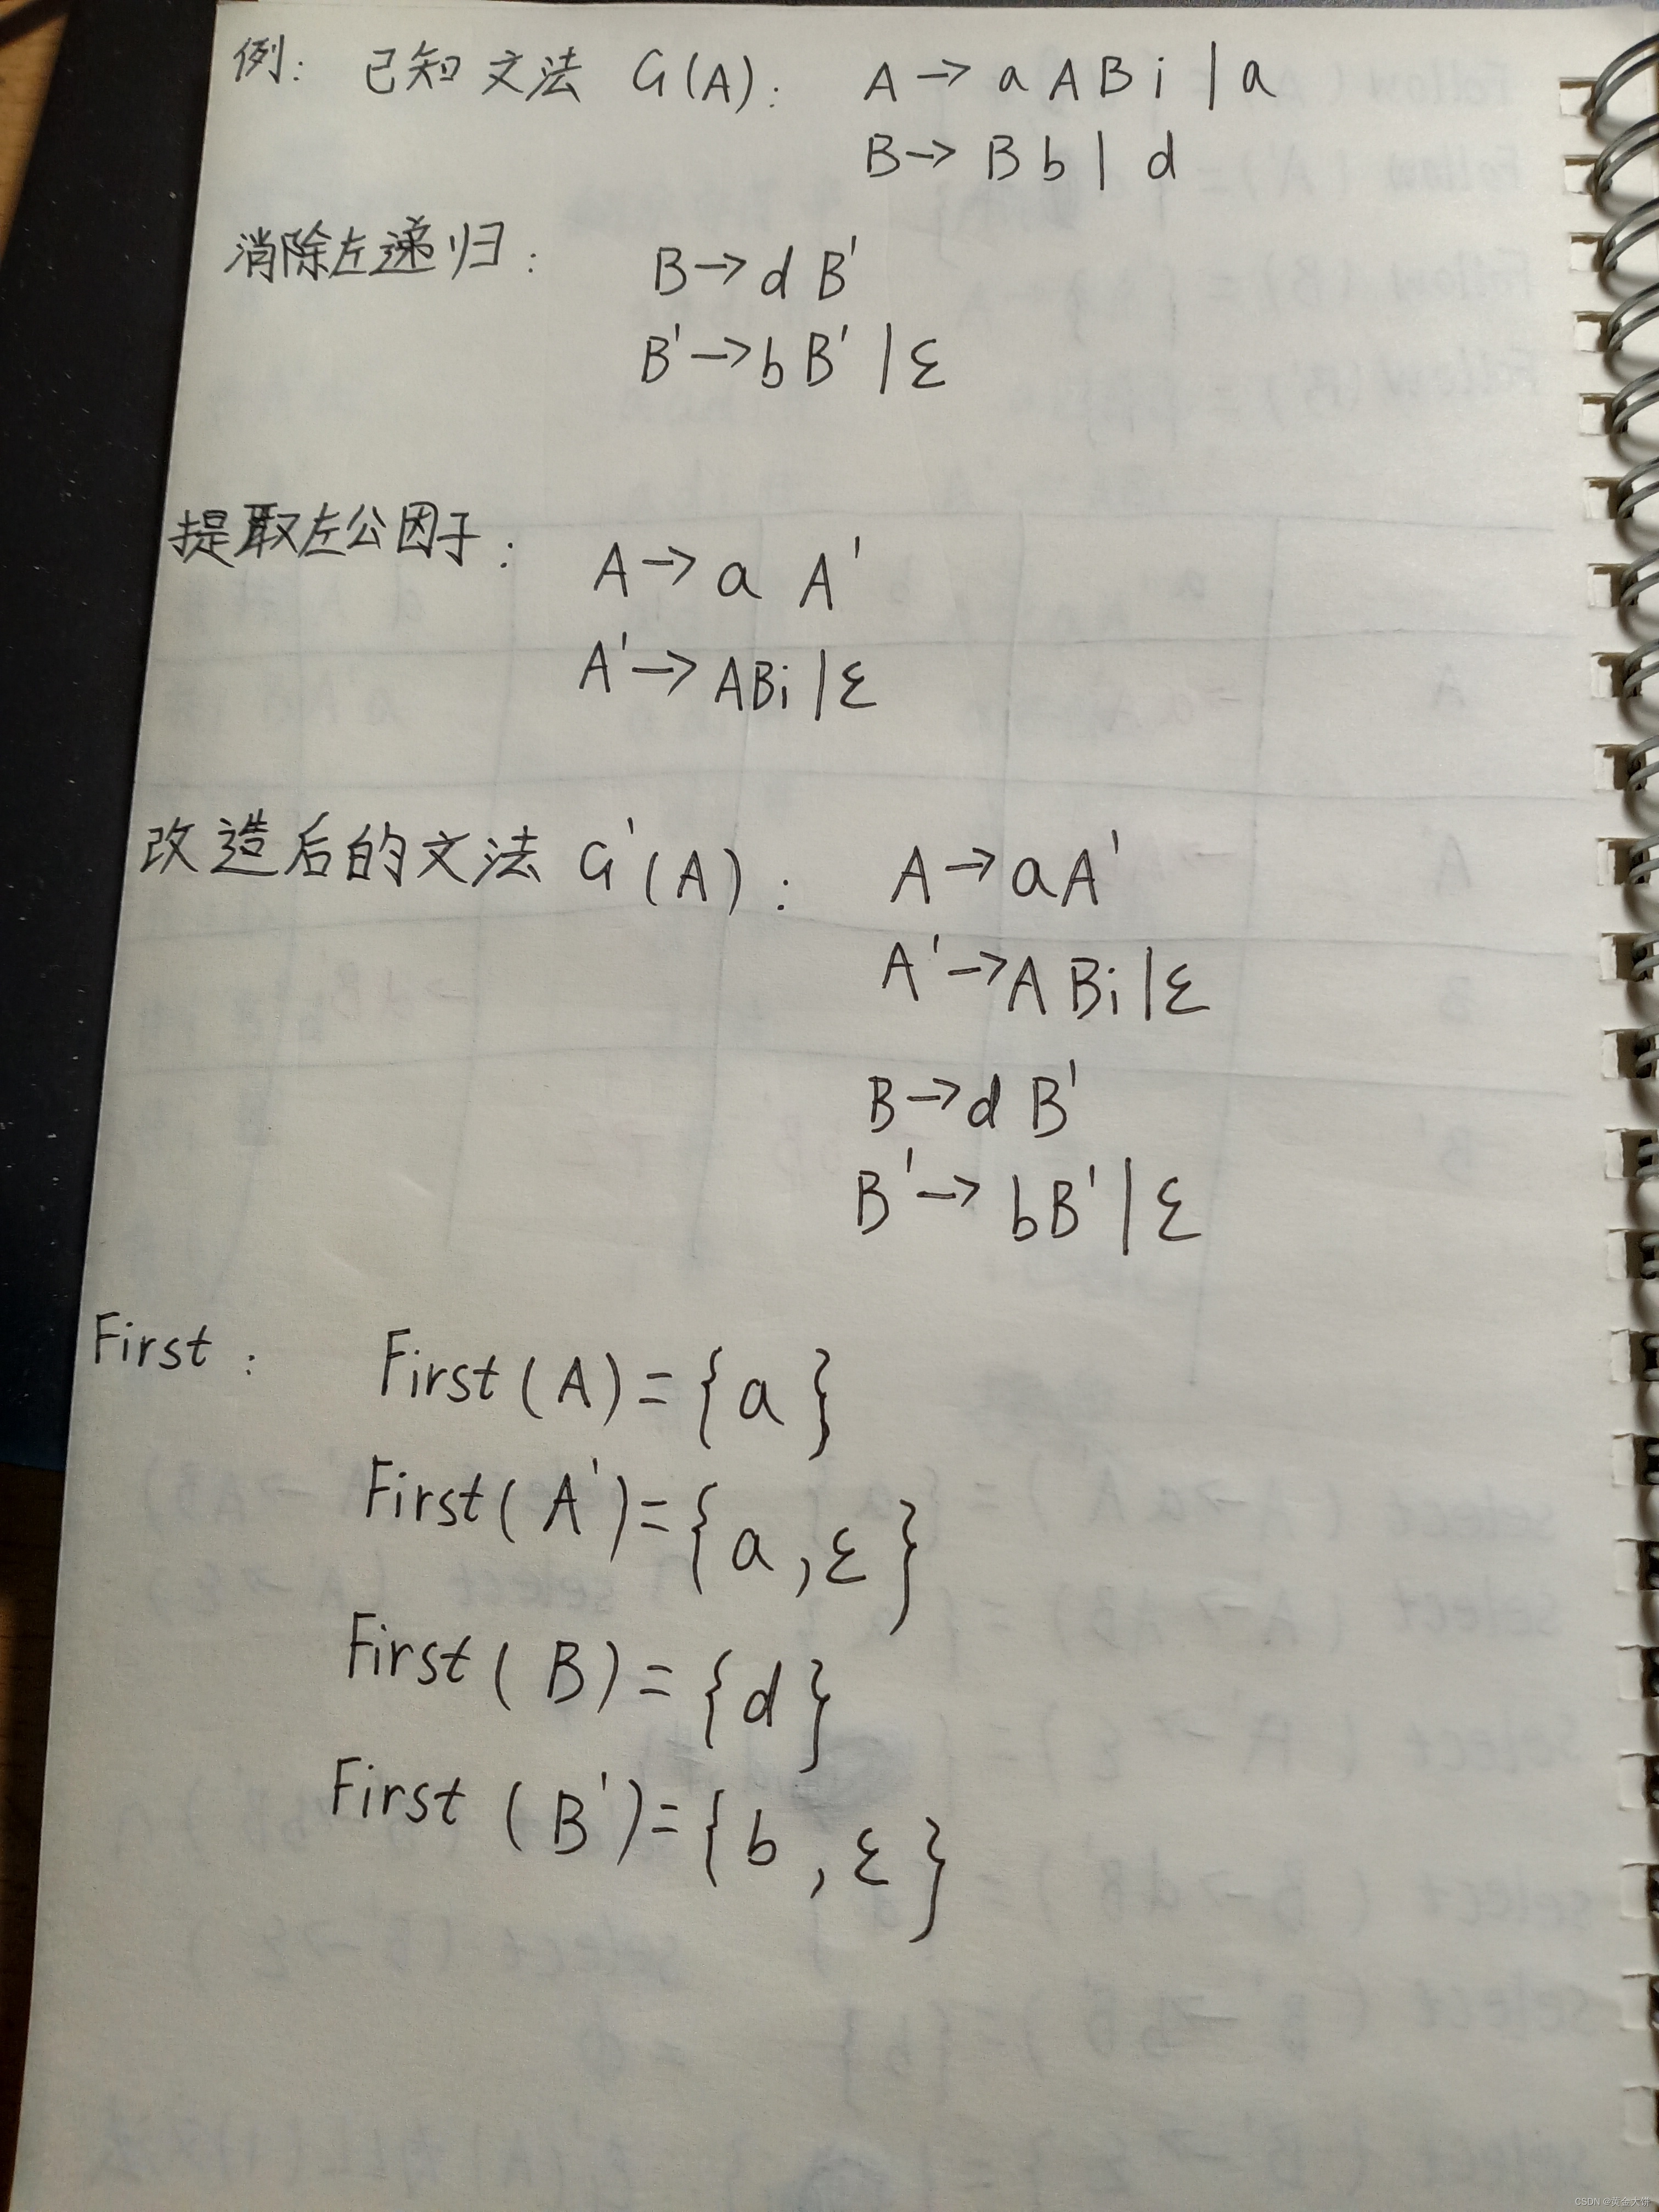 例: 已知文法 G(A): A→aABi|a
B→Bb|d
消除左递归: B→dB'
B'→bB'|ε
提取左公因子: A→aA'
A'→ABi|ε
改造后的文法 G'(A): A→aA'
A'→ABi|ε
B→dB'
B'→bB'|ε
First: First(A)={a}
First(A')={a,ε}
First(B)={d}
First(B')={b,ε}
CSDN @黄金大饼